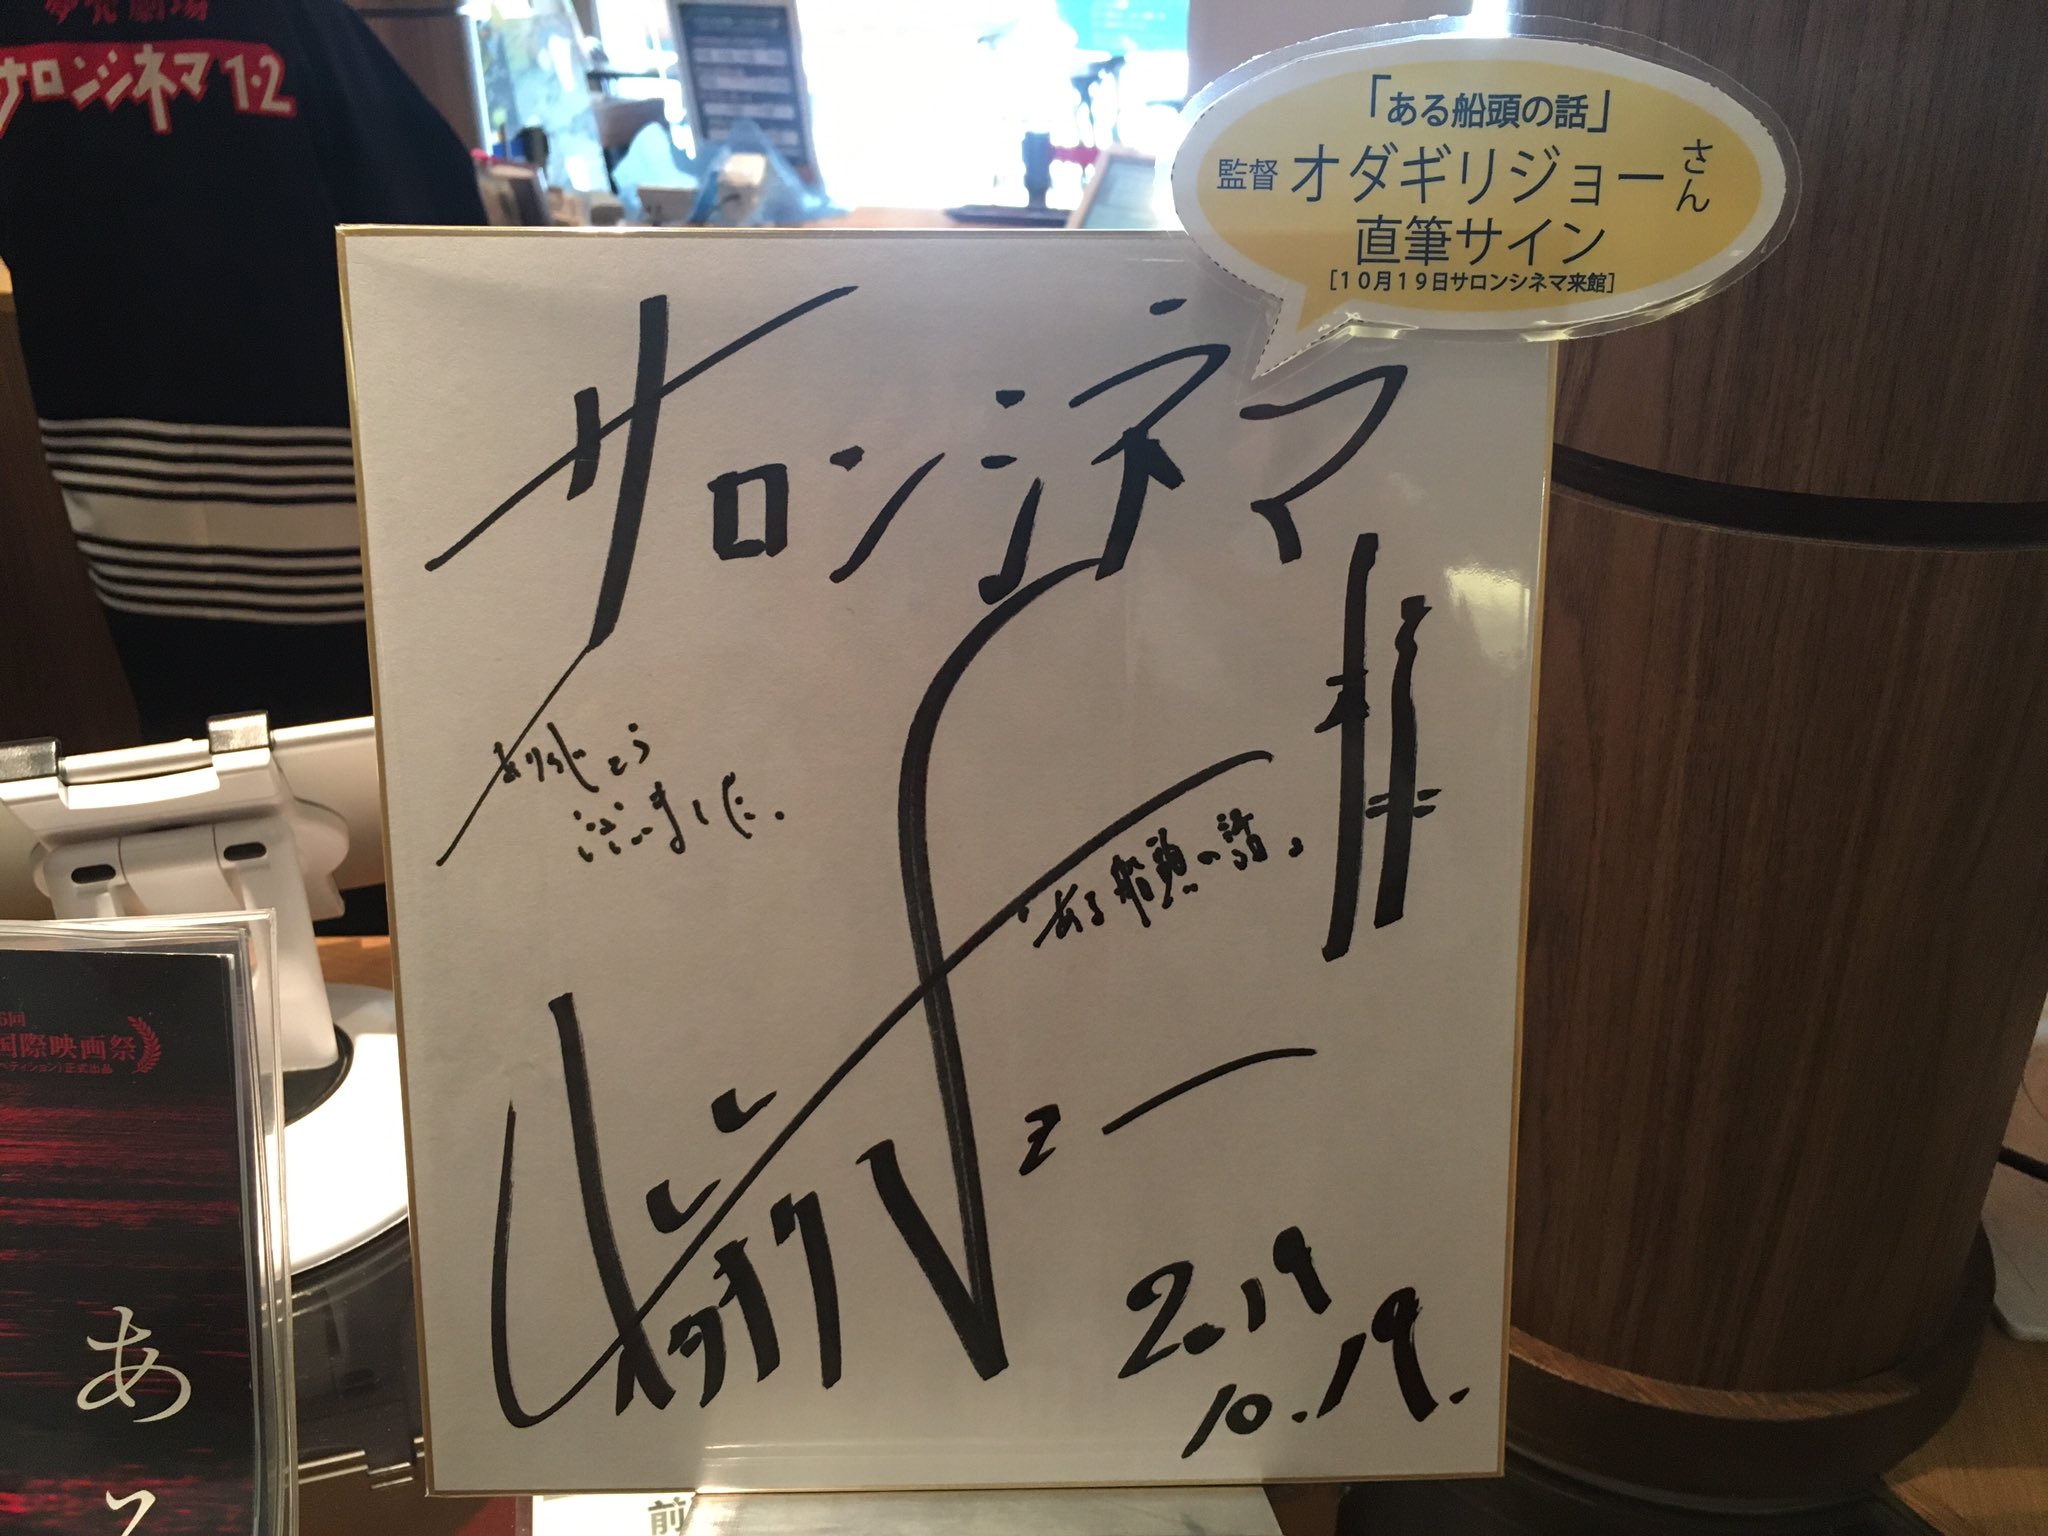 夢売劇場
サロンシネマ1・2
「ある船頭の話」
監督 オダギリジョーさん
直筆サイン
[10月19日サロンシネマ来館]
サロンシネマ
ありがとう
ございました。
ある船頭の話。
オダギリジョー
2019
10.19.
6回
国際映画祭
ペティション)正式出品
あ
前